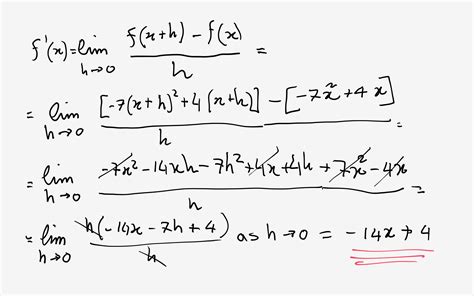 f'(x)=lim h→0 f(x+h) - f(x) / h =
= lim h→0 [-7(x+h)²+4(x+h)] - [-7x²+4x] / h =
= lim h→0 -7x²-14xh-7h²+4x+4h+7x²-4x / h =
= lim h→0 h(-14x-7h+4) / h as h→0 = -14x+4